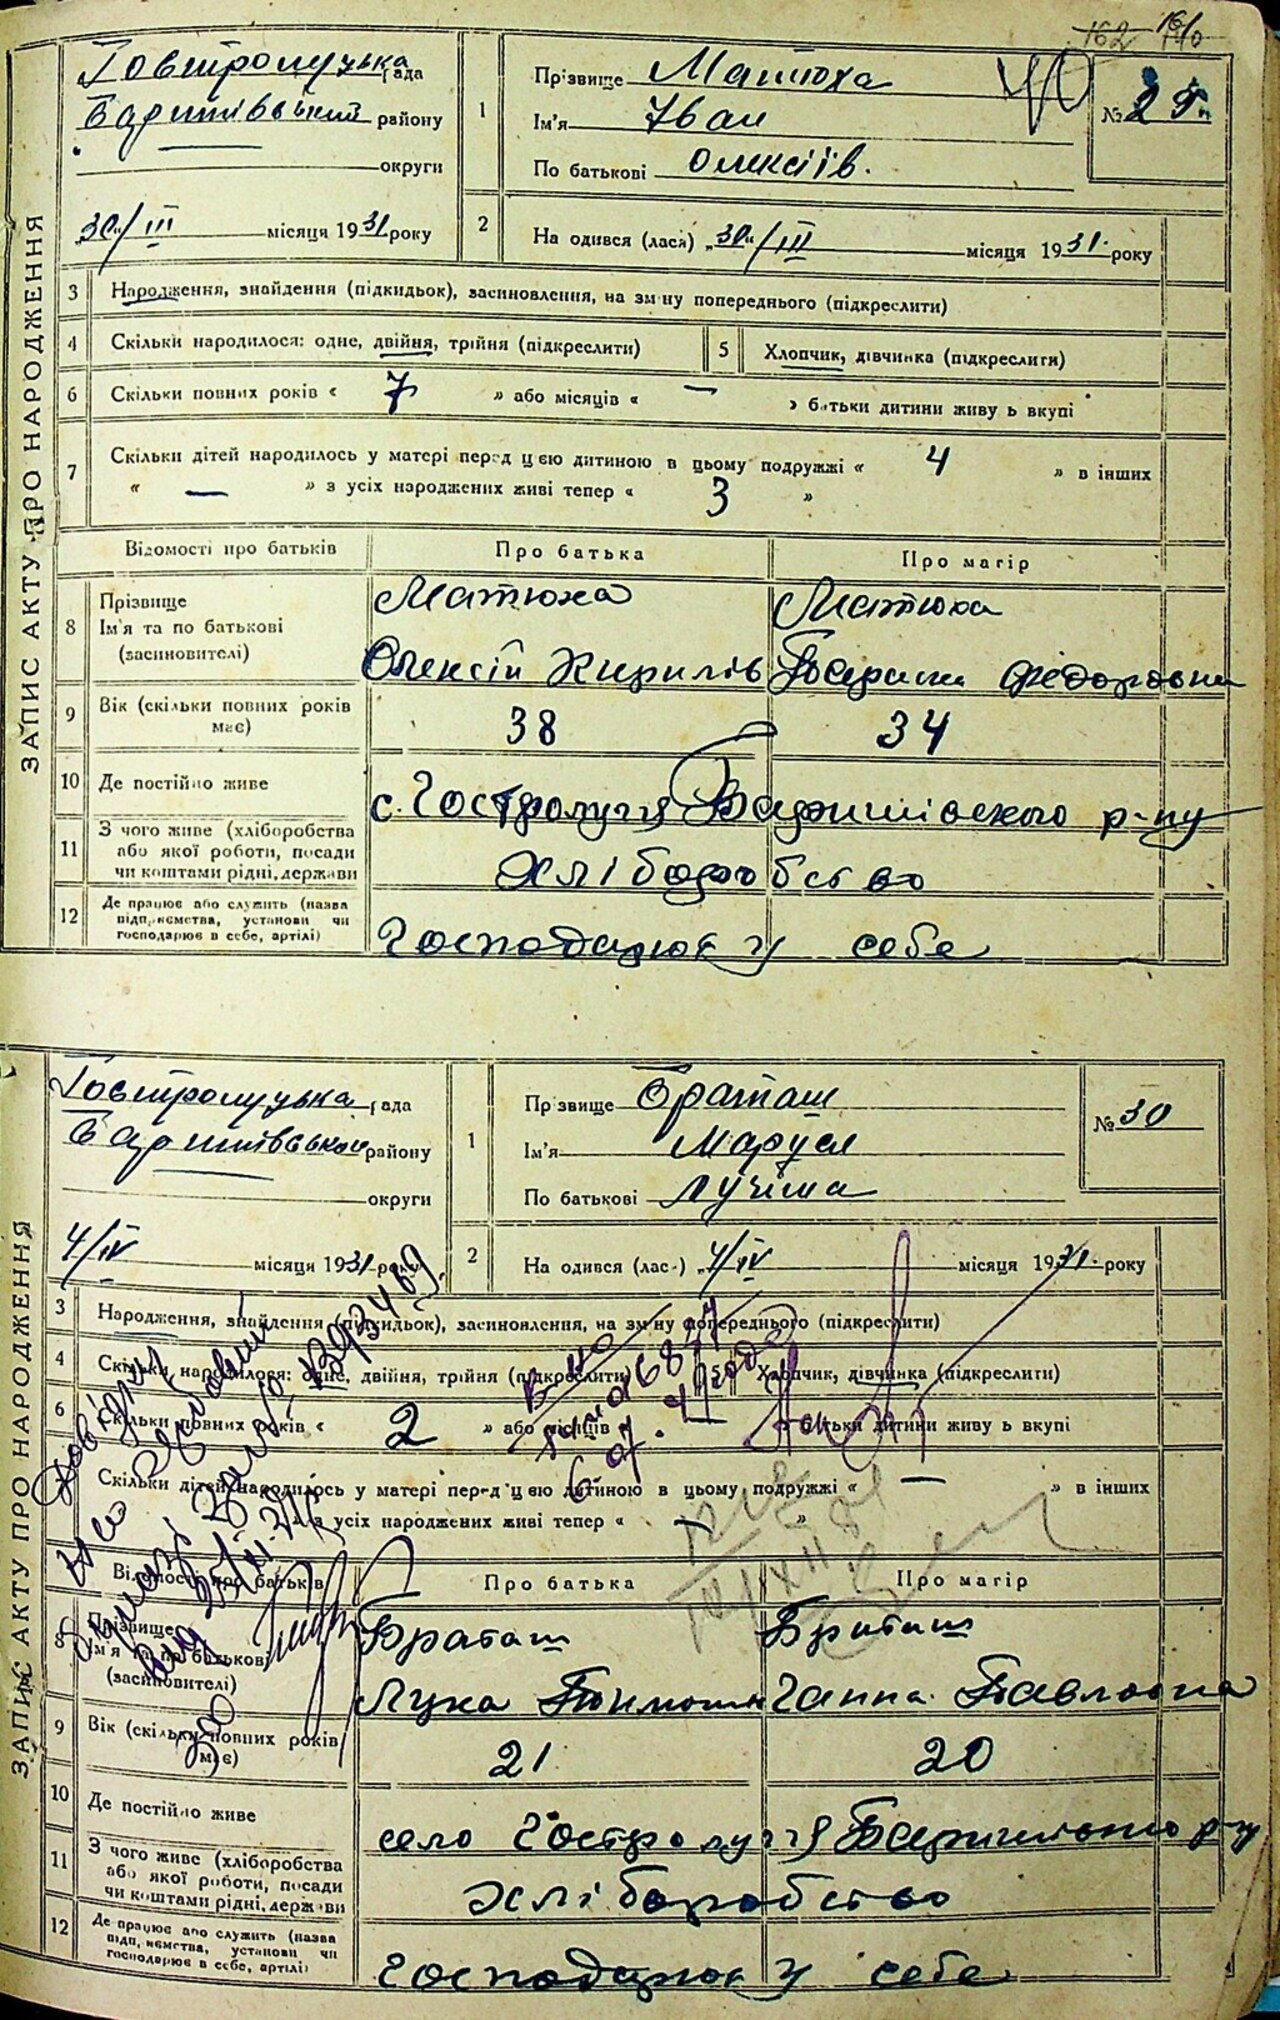 162
Гостролуцька рада
Баришівський району
округи
30/III місяця 1931 року
ЗАПИС АКТУ ПРО НАРОДЖЕННЯ
1 Прізвище Матюха
Ім'я Іван
По батькові Олексіїв.
№ 29
2 Народився (лася) „30"/III місяця 1931. року
3 Народження, знайдення (підкидьок), засиновлення, на зміну попереднього (підкреслити)
4 Скільки народилося: одне, двійня, трійня (підкреслити) 5 Хлопчик, дівчинка (підкреслити)
6 Скільки повних років « 7 » або місяців « — » батьки дитини живуть вкупі
7 Скільки дітей народилось у матері перед цією дитиною в цьому подружжі « 4 » в інших
« — » з усіх народжених живі тепер « 3 »
Відомості про батьків Про батька Про матір
8 Прізвище Матюха Матюха
Ім'я та по батькові
(засиновителі) Олексій Кирилів Федоровна
9 Вік (скільки повних років має) 38 34
10 Де постійно живе с. Гостролуччя Баришівского р-ну
11 З чого живе (хліборобства
або якої роботи, посади
чи коштами рідні, держави Хліборобство
12 Де працює або служить (назва
підприємства, установи чи
господарює в себе, артілі) Господарює у себе
Гостролуцька рада
Баришівський району
округи
4/IV місяця 1931 року
ЗАПИС АКТУ ПРО НАРОДЖЕННЯ
1 Прізвище Браташ
Ім'я Маруся
По батькові Лукіша
№ 30
2 Народився (лася) „4/IV місяця 1931. року
3 Народження, знайдення (підкидьок), засиновлення, на зміну попереднього (підкреслити)
4 Скільки народилося: одне, двійня, трійня (підкреслити) Хлопчик, дівчинка (підкреслити)
6 Скільки повних років « 2 » або місяців « » батьки дитини живуть вкупі
7 Скільки дітей народилось у матері перед цією дитиною в цьому подружжі « — » в інших
» з усіх народжених живі тепер « — »
Відомості про батьків Про батька Про матір
8 Прізвище Браташ Браташ
Ім'я та по батькові
(засиновителі) Лука Ганна Павловна
9 Вік (скільки повних років має) 21 20
10 Де постійно живе село Гостролуччя р-ну
11 З чого живе (хліборобства
або якої роботи, посади
чи коштами рідні, держави Хліборобство
12 Де працює або служить (назва
підприємства, установи чи
господарює в себе, артілі) Господарює у себе